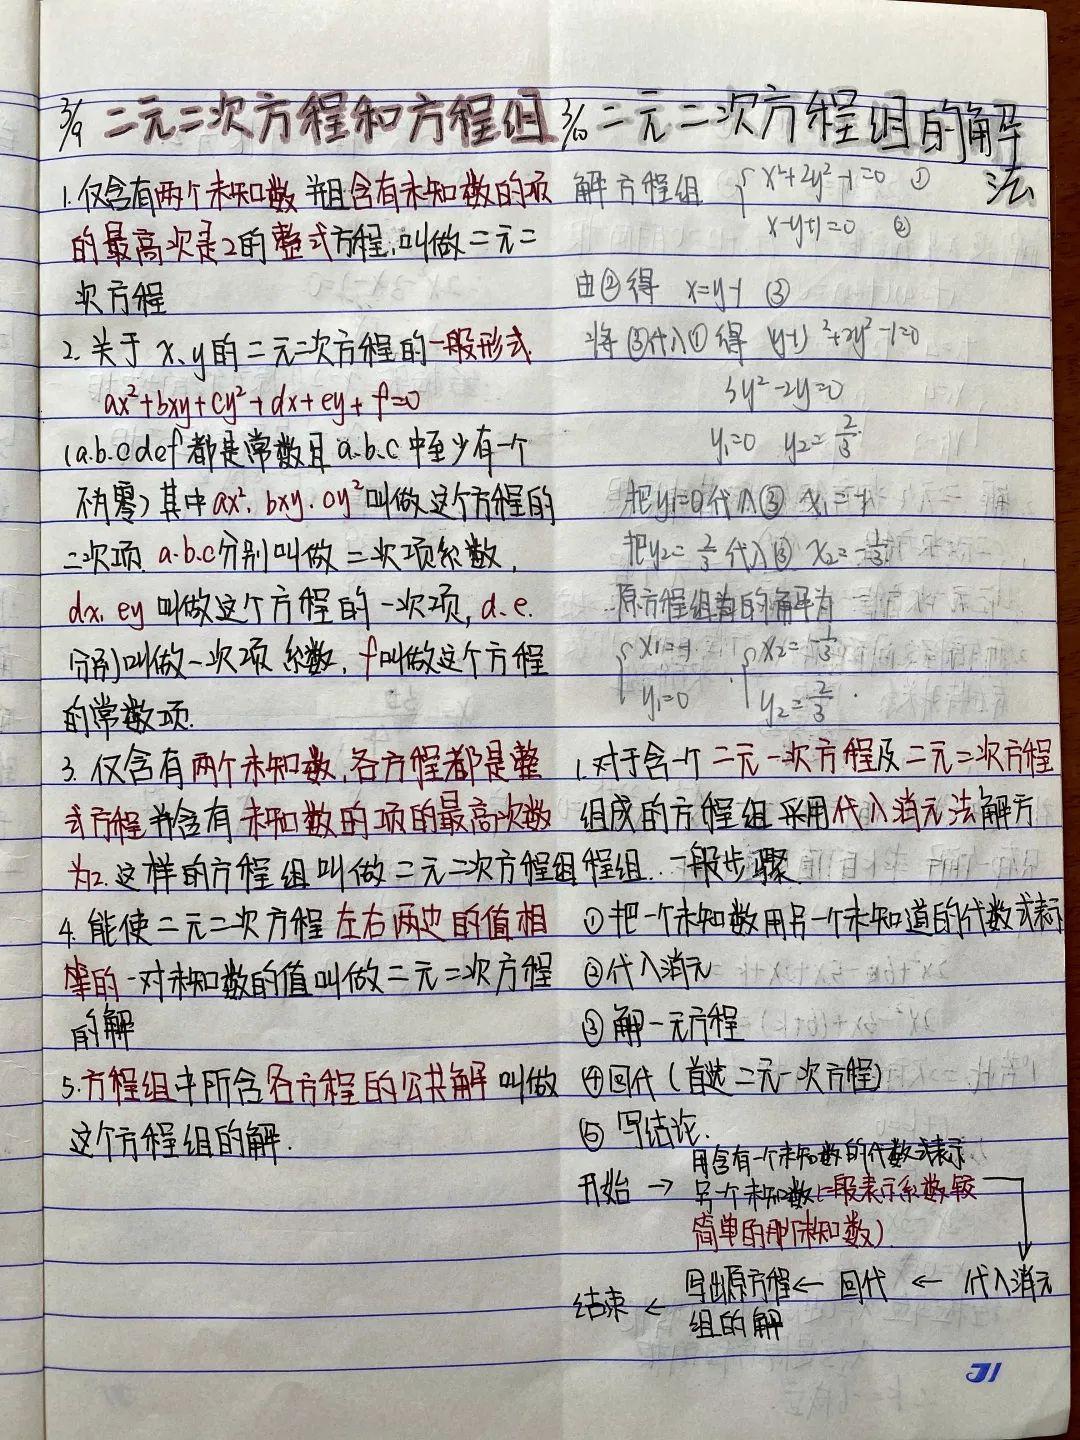 3/9 二元二次方程和方程组
1. 仅含有两个未知数并且含有未知数的项
的最高次是2的整式方程,叫做二元二
次方程
2. 关于x、y的二元二次方程的一般形式
ax²+bxy+cy²+dx+ey+f=0
(a.b.c def都是常数且a.b.c中至少有一个
不为零)其中ax². bxy. cy²叫做这个方程的
二次项. a.b.c分别叫做二次项系数,
dx, ey叫做这个方程的一次项, d.e.
分别叫做一次项系数, f叫做这个方程
的常数项.
3. 仅含有两个未知数,各方程都是整
式方程并含有未知数的项的最高次数
为2.这样的方程组叫做二元二次方程组
4. 能使二元二次方程左右两边的值相
等的一对未知数的值叫做二元二次方程
的解
5.方程组中所含各方程的公共解叫做
这个方程组的解.
3/10 二元二次方程组的解
法
解方程组 { x²+2y²-1=0 ①
x-y+1=0 ②
由②得 x=y-1 ③
将③代入①得 (y-1)²+2y²-1=0
3y²-2y=0
y₁=0 y₂=2/3
把y₁=0代入③ x₁=-1
把y₂=2/3代入③ x₂=-1/3
原方程组的解为
{ x₁=-1 { x₂=-1/3
y₁=0 y₂=2/3
1.对于含一个二元一次方程及二元二次方程
组成的方程组采用代入消元法解方
程组.一般步骤
①把一个未知数用另一个未知道的代数式表示
②代入消元
③解一元方程
④回代(首选二元一次方程)
⑤写结论.
开始 → 用含有一个未知数的代数式表示
另一个未知数(一般表示系数较
简单的那个未知数)
结束 ← 写出原方程 ← 回代 ← 代入消元
组的解